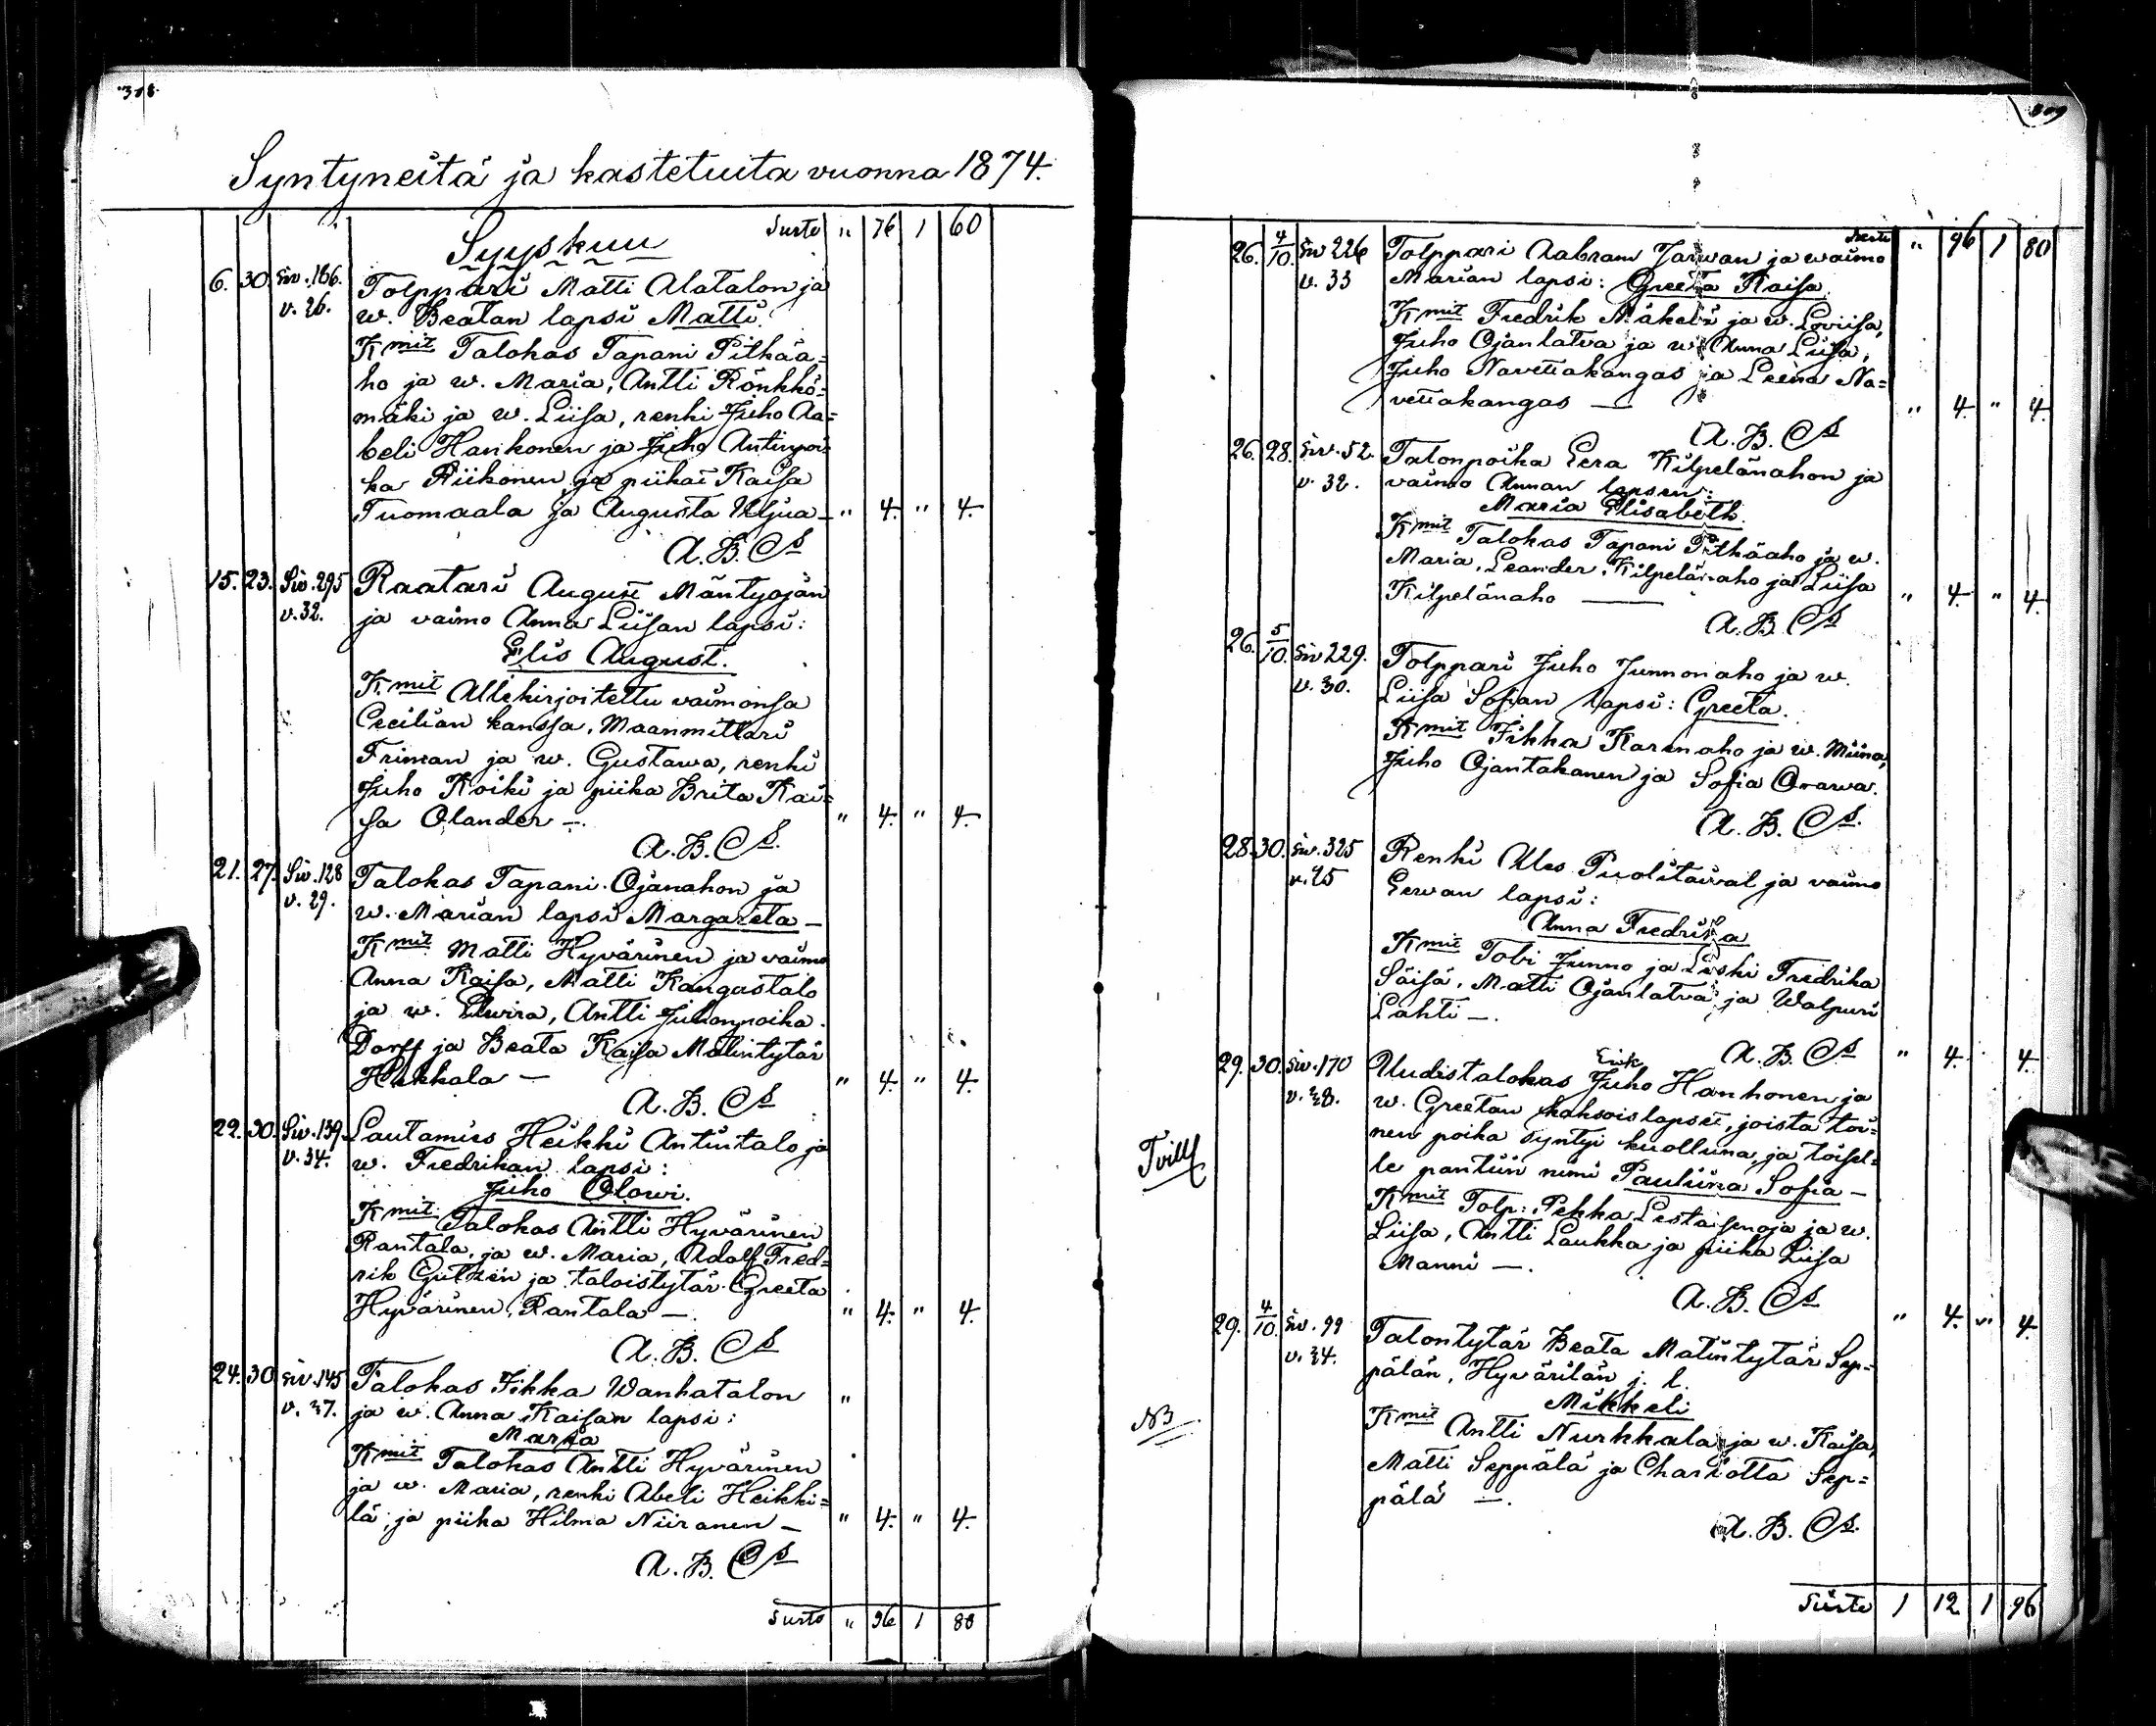 308
Syntyneitä ja kastetuita vuonna 1874.
Syyskuu
Siirto " 76 1 60
6. 30. Siv. 186. Tolppari Matti Alatalon ja
v. 26. w. Beatan lapsi Matti.
Kmit Talokas Tapani Pitkäa=
ho ja w. Maria, Antti Rönkkö=
mäki ja w. Liisa, renki Juho Aa=
beli Hankonen ja Juho Antinpoi=
ka Riikonen, ja piikai Kaisa
Tuomaala ja Augusta Uljua — " 4. " 4.
A. B. Cs
15. 23. Siv. 295 Raatari August Mäntyojän
v. 32. ja vaimo Anna Liisan lapsi:
Elis August.
Kmit Allekirjoitettu vaimonsa
Cecilian kanssa, Maanmittari
Friman ja w. Gustawa, renki
Juho Koiki ja piika Brita Kai=
sa Olander —. " 4. " 4.
A. B. Cs.
21. 27. Siv. 128 Talokas Tapani Ojanahon ja
v. 29. w. Marian lapsi Margareta —
Kmit Matti Hyvärinen ja vaimo
Anna Kaisa, Matti Kangastalo
ja w. Elwira, Antti Juhonpoika
Dorff ja Beata Kaisa Matintytär
Hukkala — " 4. " 4.
A. B. Cs
22. 30. Siv. 139 Lautamies Heikki Antintalo ja
v. 34. w. Fredrikan lapsi:
Juho Olowi.
Kmit Talokas Antti Hyvärinen
Rantala, ja w. Maria, Adolf Fred=
rik Gutzén ja taloistytär Greeta
Hyvärinen, Rantala —. " 4. " 4.
A. B. Cs
24. 30. Siv. 145 Talokas Jikka Wanhatalon "
v. 37. ja w. Anna Kaisan lapsi:
Maria
Kmit Talokas Antti Hyvärinen
ja w. Maria, renki Abeli Heikki=
lä, ja piika Hilma Niiranen — " 4. " 4.
A. B. Cs
Siirto " 96 1 80
309
Siirto " 96 1 80
26. 4/10. Siv 226 Tolppari Aabram Jarwan ja waimo
v. 33 Marian lapsi: Greeta Kaisa.
Kmit Fredrik Mäkelä ja w. Loviisa,
Juho Ojanlatva ja w. Anna Liisa,
Juho Navettakangas ja Leena Na=
vettakangas — " 4. " 4.
A. B. Cs
26. 28. Siv. 52. Talonpoika Eera Kilpelänahon ja
v. 32. vaimo Annan lapsen:
Maria Elisabeth.
Kmit Talokas Tapani Pitkäaho ja w.
Maria, Leander Kilpelänaho ja Liisa
Kilpelänaho — " 4. " 4.
A. B. Cs
26. 5/10. Siv 229. Tolppari Juho Junnonaho ja w.
v. 30. Liisa Sofian lapsi: Greeta.
Kmit Jikka Karinaho ja w. Miina,
Juho Ojantakanen ja Sofia Orawa.
A. B. Cs.
28. 30. Siv. 325 Renki Ules Puolitaival ja vaimo
v. 25 Eewan lapsi:
Anna Fredrika
Kmit Tobi Junno ja Leski Fredrika
Säisä, Matti Ojanlatva ja Walpuri
Lahti —.
A. B. Cs " 4. 4.
29. 30. Siv. 170 Uudistalokas Juho Erik Hanhonen ja
v. 28. w. Greetan kaksoislapset, joista toi=
Tvill nen poika syntyi kuolluna, ja toisel=
le pantiin nimi Pauliina Sofia —
Kmit Tolp: Pekka Lestaisenoja ja w.
Liisa, Antti Laukka ja piika Liisa
Manni —.
A. B. Cs " 4. " 4
29. 4/10. Siv. 99 Talontytär Beata Matintytär Sep=
v. 34. pälän, Hyvärilän j. l.
NB Mikkeli
Kmit Antti Nurkkala ja w. Kaisa,
Matti Seppälä ja Charlotta Sep=
pälä —.
A. B. Cs.
Siirto 1 12 1 96